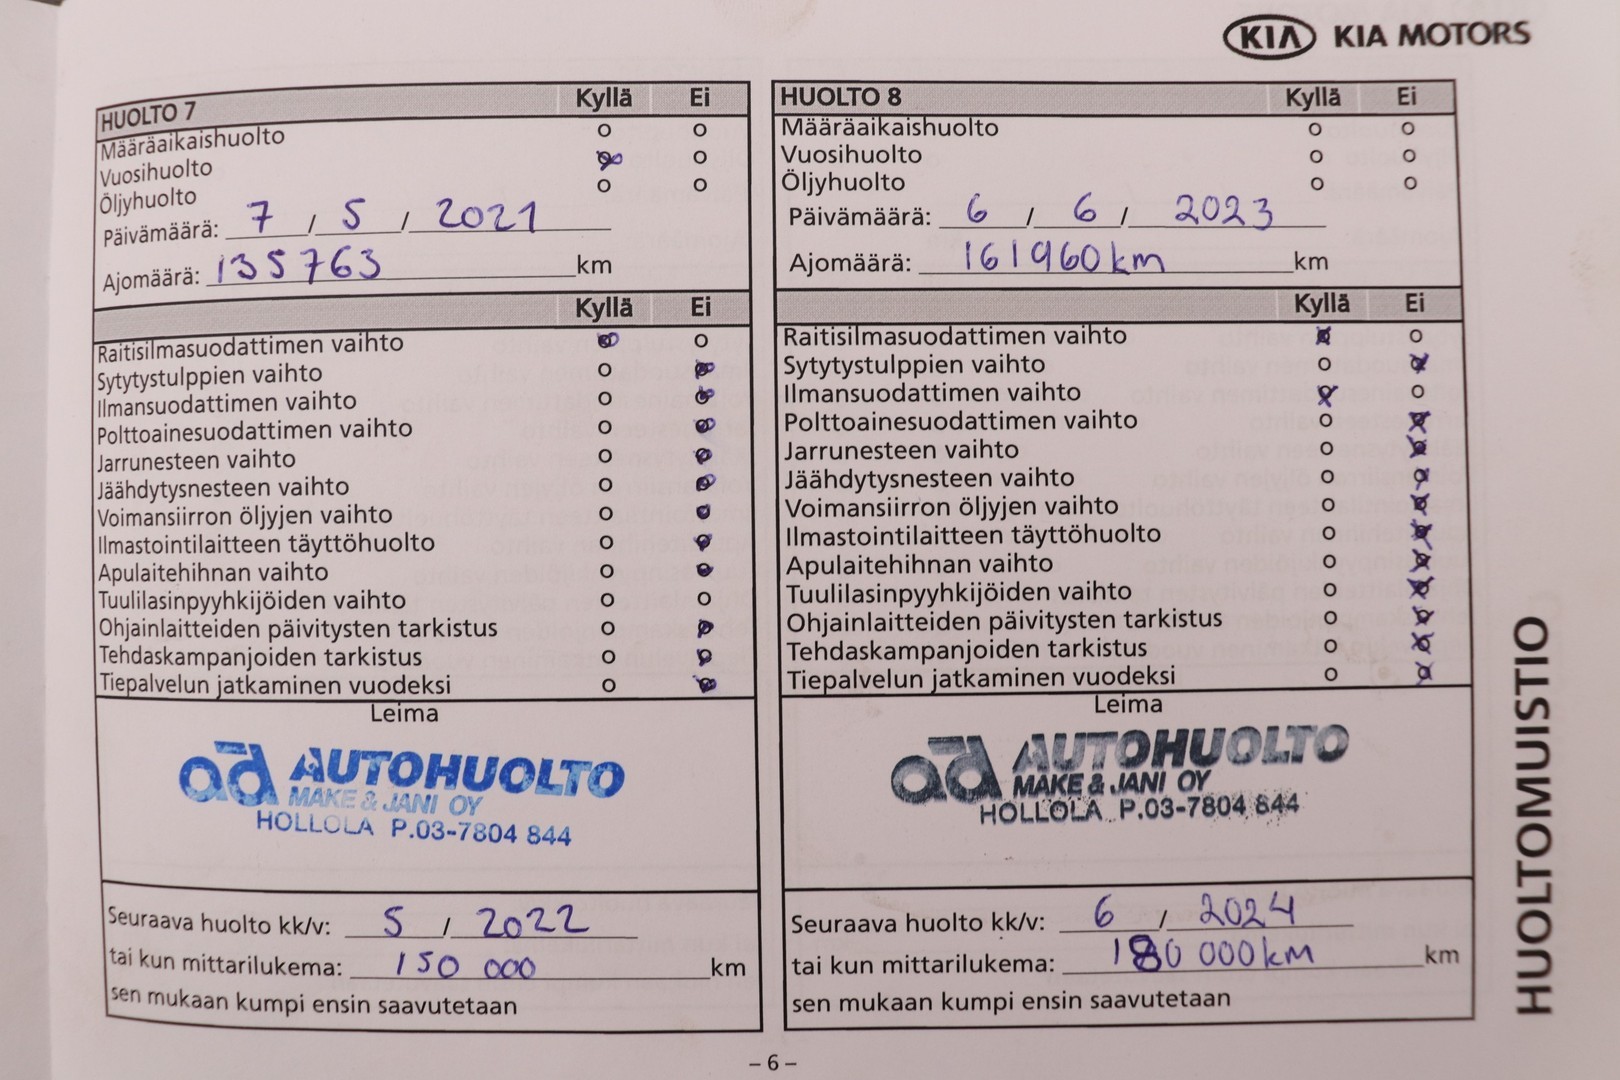 KIA KIA MOTORS
HUOLTO 7 Kyllä Ei
Määräaikaishuolto o o
Vuosihuolto o o
Öljyhuolto o o
Päivämäärä: 7 / 5 / 2021
Ajomäärä: 135763 km
Kyllä Ei
Raitisilmasuodattimen vaihto
Sytytystulppien vaihto
Ilmansuodattimen vaihto
Polttoainesuodattimen vaihto
Jarrunesteen vaihto
Jäähdytysnesteen vaihto
Voimansiirron öljyjen vaihto
Ilmastointilaitteen täyttöhuolto
Apulaitehihnan vaihto
Tuulilasinpyyhkijöiden vaihto
Ohjainlaitteiden päivitysten tarkistus
Tehdaskampanjoiden tarkistus
Tiepalvelun jatkaminen vuodeksi
Leima
ad AUTOHUOLTO
MAKE & JANI OY
HOLLOLA P.03-7804 844
Seuraava huolto kk/v: 5 / 2022
tai kun mittarilukema: 150 000 km
sen mukaan kumpi ensin saavutetaan
HUOLTO 8 Kyllä Ei
Määräaikaishuolto o o
Vuosihuolto o o
Öljyhuolto o o
Päivämäärä: 6 / 6 / 2023
Ajomäärä: 161960km km
Kyllä Ei
Raitisilmasuodattimen vaihto
Sytytystulppien vaihto
Ilmansuodattimen vaihto
Polttoainesuodattimen vaihto
Jarrunesteen vaihto
Jäähdytysnesteen vaihto
Voimansiirron öljyjen vaihto
Ilmastointilaitteen täyttöhuolto
Apulaitehihnan vaihto
Tuulilasinpyyhkijöiden vaihto
Ohjainlaitteiden päivitysten tarkistus
Tehdaskampanjoiden tarkistus
Tiepalvelun jatkaminen vuodeksi
Leima
ad AUTOHUOLTO
MAKE & JANI OY
HOLLOLA P.03-7804 844
Seuraava huolto kk/v: 6 / 2024
tai kun mittarilukema: 180 000km km
sen mukaan kumpi ensin saavutetaan
HUOLTOMUISTIO
– 6 –